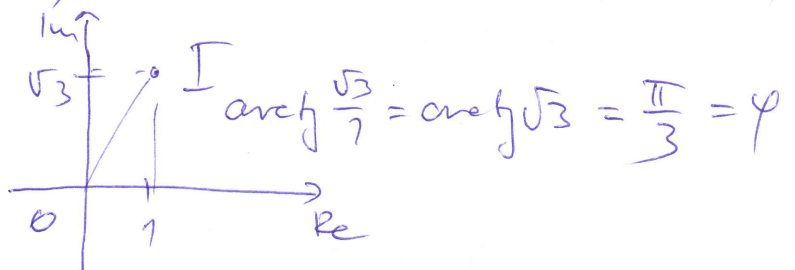 Im
√3 I
arctg √3/1 = arctg √3 = π/3 = φ
0 1 Re